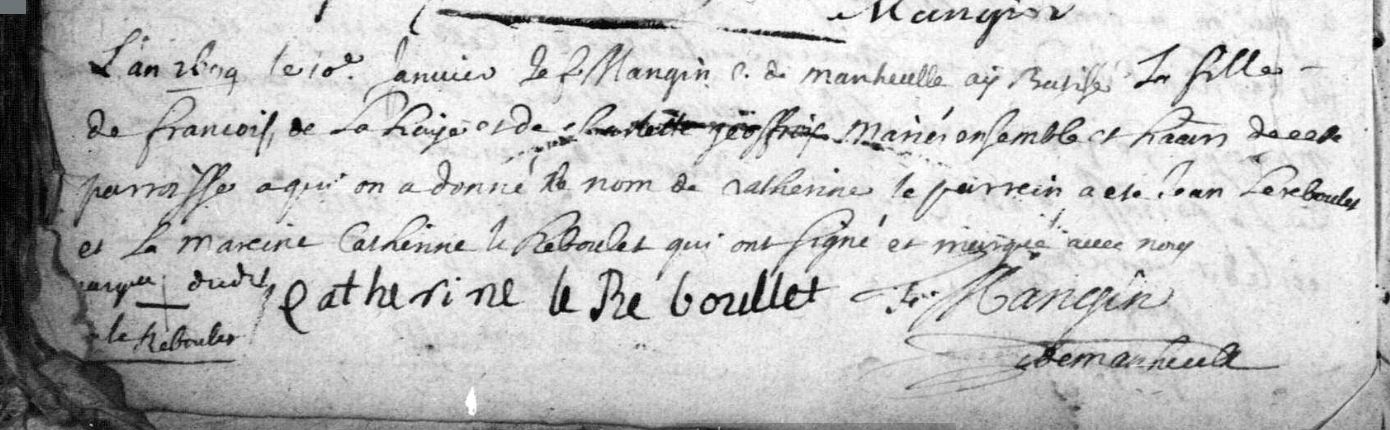 Mangin
L'an 1679 le 10e Janvier Je f Mangin C. de manheulle aÿ Batisé La fille
de francois de La haÿe et de charlotte geoffroy Mariés ensemble et de cete
parroisse a qui on a donné le nom de Catherine le parrein a ete Jean Lereboulet
et La mareine Catherinne le Reboulet qui ont signé et marqué avec nous
marque dudit Catherine le Re boullet f. Mangin
le Reboulet demanheulle